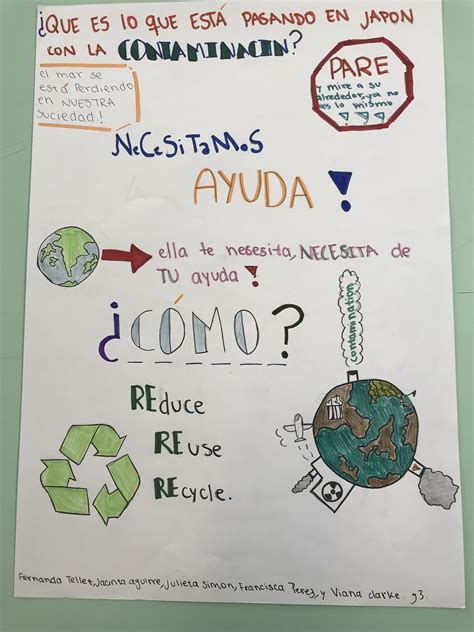 ¿QUE ES LO QUE ESTÁ PASANDO EN JAPON
CON LA CONTAMINACIN?
el mar se
está Perdiendo
en NUESTRA
suciedad!
PARE
y mire a su
alrededor, ya no
es lo mismo
NeCeSiTaMoS
AYUDA!
ella te nesesita, NECESITA de
TU ayuda!
¿CÓMO?
contamination
REduce
REuse
REcycle.
Fernanda Tellez, Jacinta aguirre, Julieta Simon, Francisca Perez, y Viana clarke. g3.